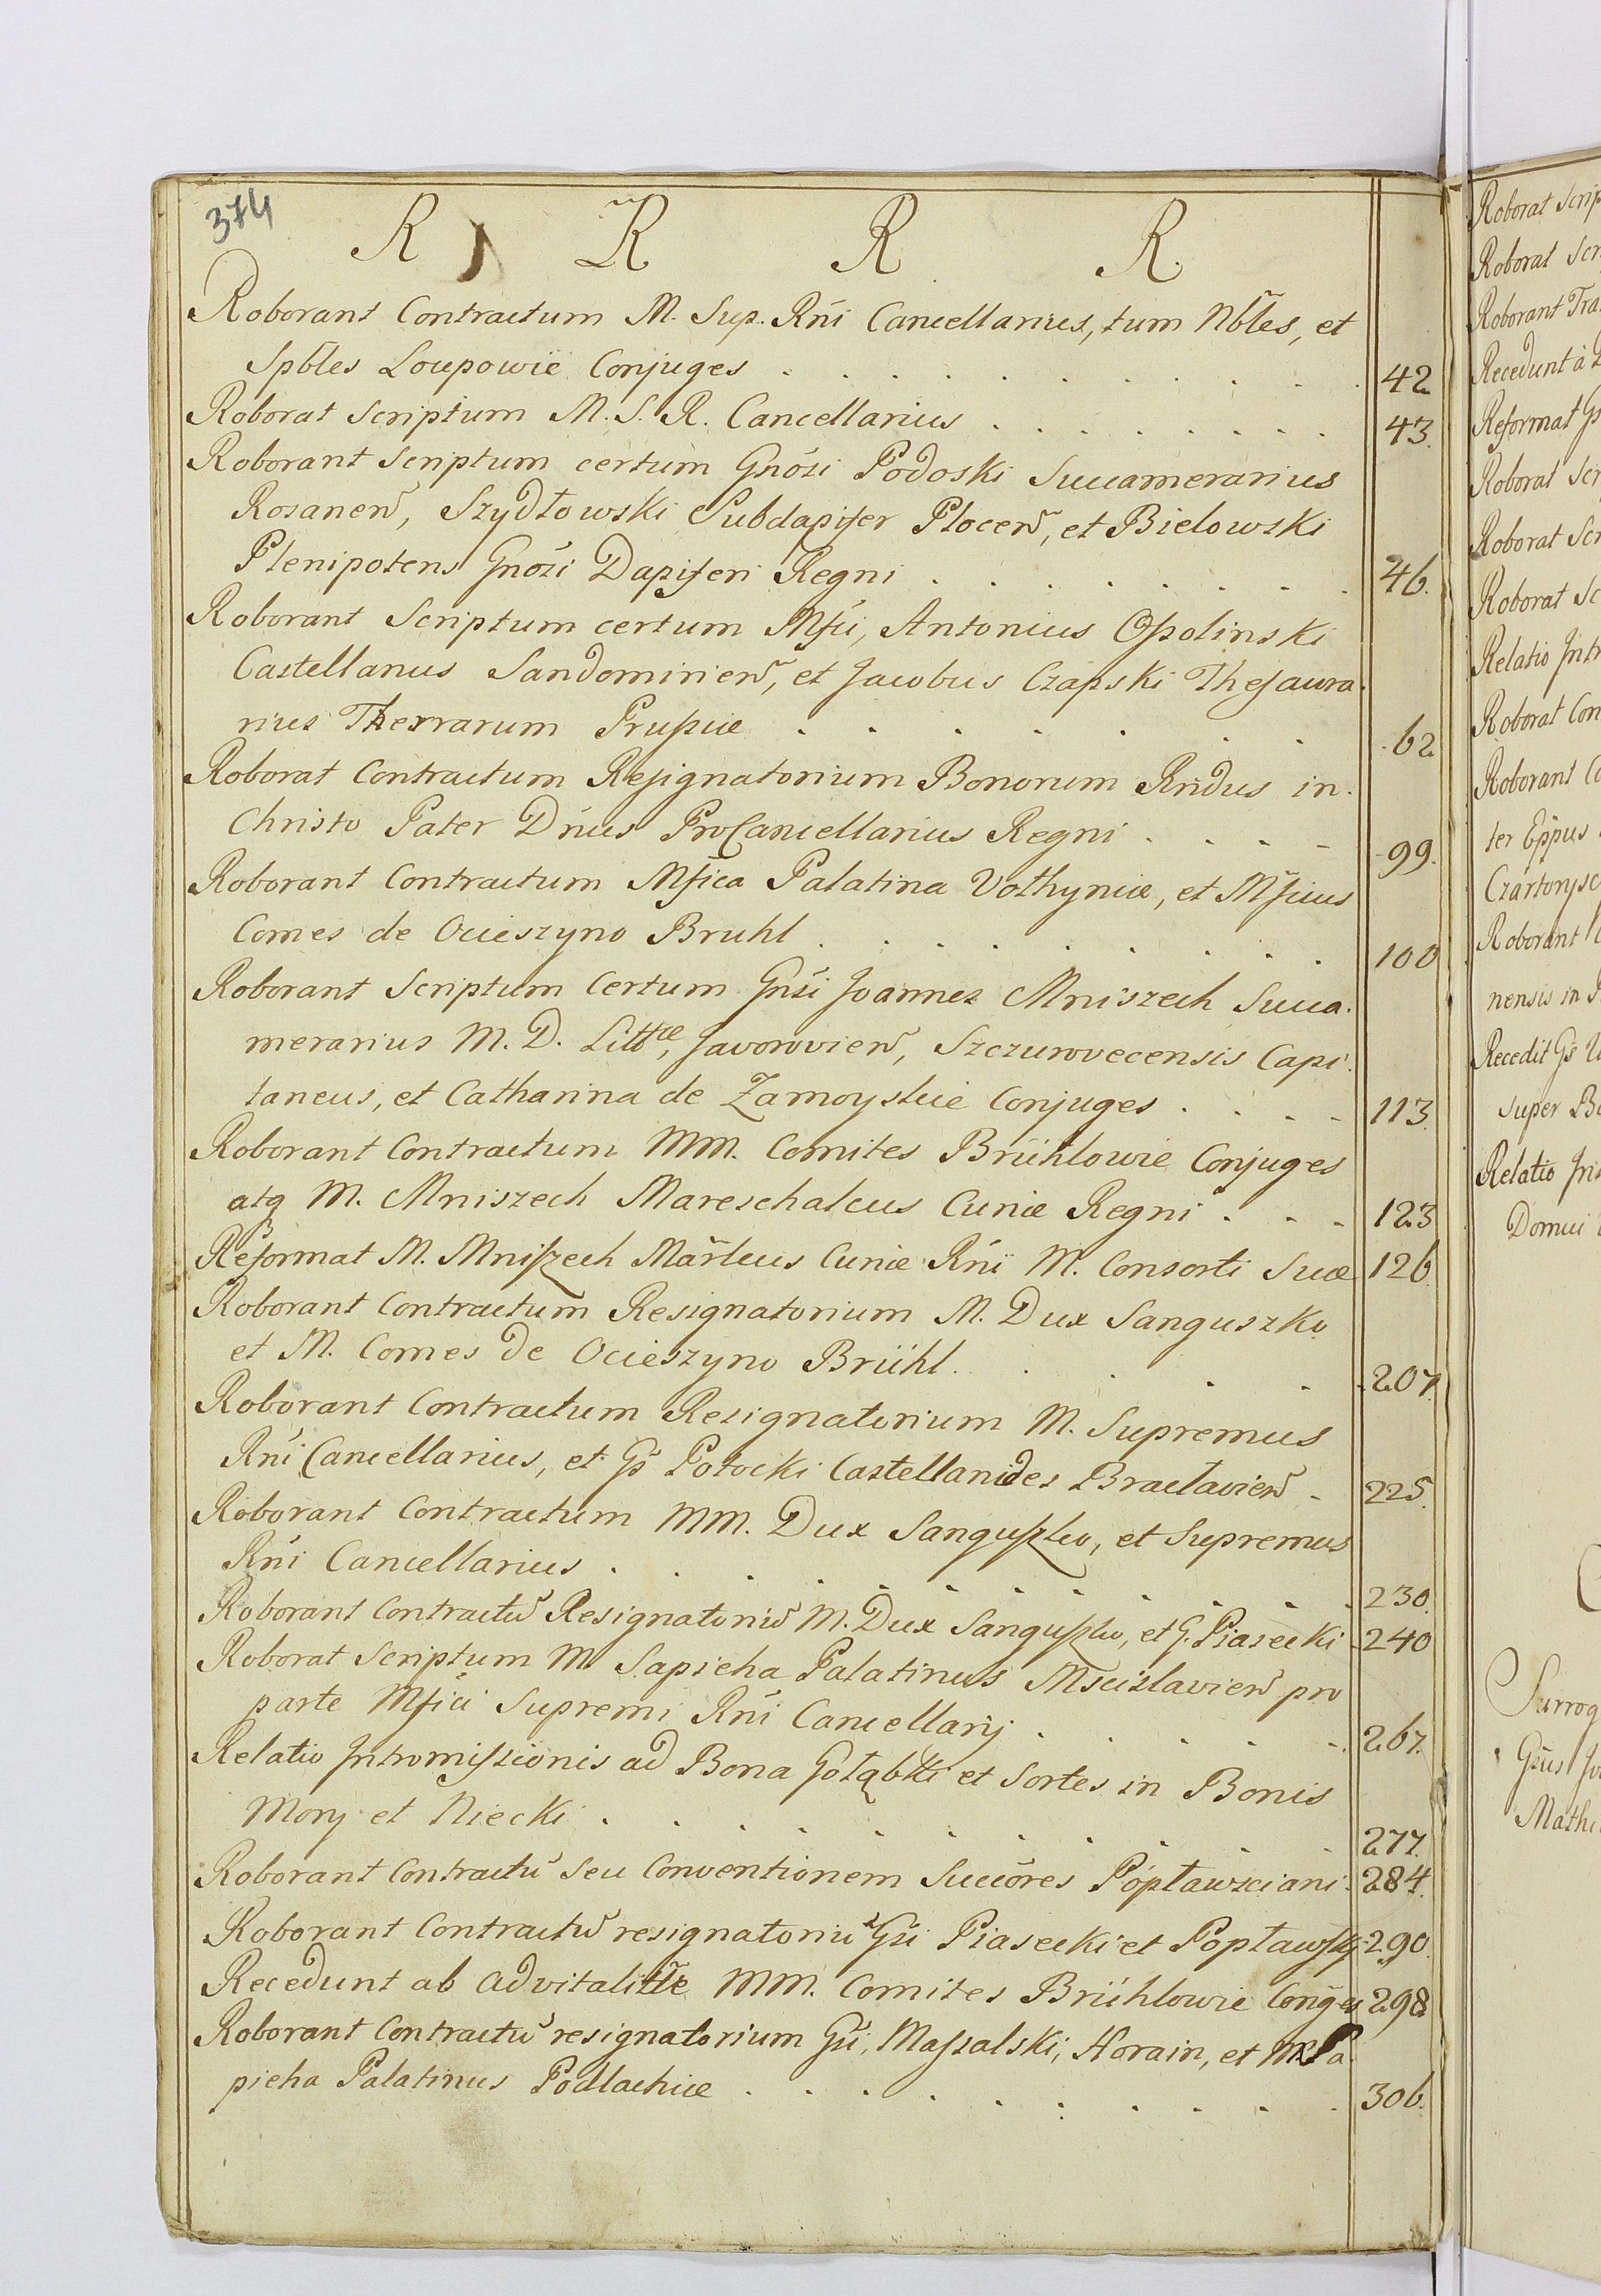 374
R R R R.
Roborant Contractum M. Sup. Rñi Cancellarius, tum Nbles, et
Spbles Loupowie Conjuges . . . . . . . . . . 42
Roborat Scriptum M. S. R. Cancellarius . . . . . . . . 43.
Roborant Scriptum certum Gnosi Podoski Succamerarius
Rosaneñ, Szydłowski Subdapifer Ploceñ, et Bielowski
Plenipotens Gnosi Dapiferi Regni . . . . . . . . 46.
Roborant Scriptum certum Mfci, Antonius Ossolinski
Castellanus Sandomirieñ, et Jacobus Czapski Thesaura-
rius Therrarum Prussiæ . . . . . . . 62
Roborat Contractum Resignatorium Bonorum Rñdus in
Christo Pater Dñus ProCancellarius Regni . . . . 99.
Roborant Contractum Mfica Palatina Vołhyniæ, et Mficus
Comes de Ocieszyno Bruhl . . . . . . . . . 100
Roborant Scriptum Certum Gñsi Joannes Mniszech Succa-
merarius M. D. Littæ, Javorovieñ, Szczurovecensis Capi-
taneus, et Catharina de Zamoyskie Conjuges . . . . 113.
Roborant Contractum MM. Comites Brühlowie Conjuges
atq M. Mniszech Mareschalcus Curiæ Regni . . . 123
Reformat M. Mniszech Mârlcus Curiæ Rñi M. Consorti Suæ 126.
Roborant Contractum Resignatorium M. Dux Sanguszko
et M. Comes de Ocieszyno Brühl . . . . . 207.
Roborant Contractum Resignatorium M. Supremus
Rñi Cancellarius, et Gs Potocki Castellanides Bracłavieñ - 225.
Roborant Contractum MM. Dux Sanguszko, et Supremus
Rñi Cancellarius . . . . . . . . . . . 230.
Roborant Contractũ Resignatoriũ M. Dux Sanguszko, et G. Piasecki 240
Roborat Scriptum M. Sapieha Palatinus Mscislavieñ pro
parte Mfici Supremi Rñi Cancellarij . . . . . 267.
Relatio Intromissionis ad Bona Gołąbki et Sortes in Bonis
Mory et Niecki . . . . . . . . . . . 277.
Roborant Contractũ seu Conventionem Succõres Popławsciani 284.
Roborant Contractũ resignatoriũ Gsi Piasecki et Popławscy 290.
Recedunt ab advitalitte MM. Comites Brühlowie Conges 298
Roborant Contractũ resignatorium Gsi, Massalski, Horain, et M. Sa-
pieha Palatinus Podlachiæ . . . . . . . . . 306.
Roborat Scrip
Roborat Scr
Roborant Tra
Recedunt à
Reformat
Roborat Scr
Roborat Scr
Roborat Sc
Relatio Intr
Roborat Con
Roborant Co
ter Eppus
Czartorysc
Roborant
nensis in
Recedit Gs
super Bo
Relatio
Domui
Surrog
Gsus Jo
Mathi